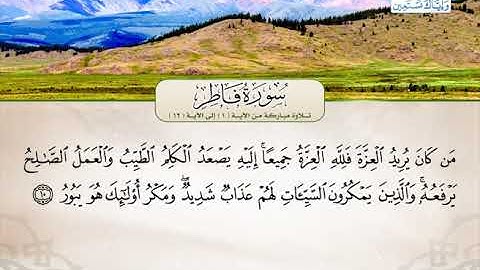 وإياك نستعين
سورة فاطر
تلاوة مباركة من الآية (١) إلى الآية (١٢)
مَن كَانَ يُرِيدُ الْعِزَّةَ فَلِلَّهِ الْعِزَّةُ جَمِيعًا ۚ إِلَيْهِ يَصْعَدُ الْكَلِمُ الطَّيِّبُ وَالْعَمَلُ الصَّالِحُ
يَرْفَعُهُ ۚ وَالَّذِينَ يَمْكُرُونَ السَّيِّئَاتِ لَهُمْ عَذَابٌ شَدِيدٌ ۖ وَمَكْرُ أُولَٰئِكَ هُوَ يَبُورُ ١٠